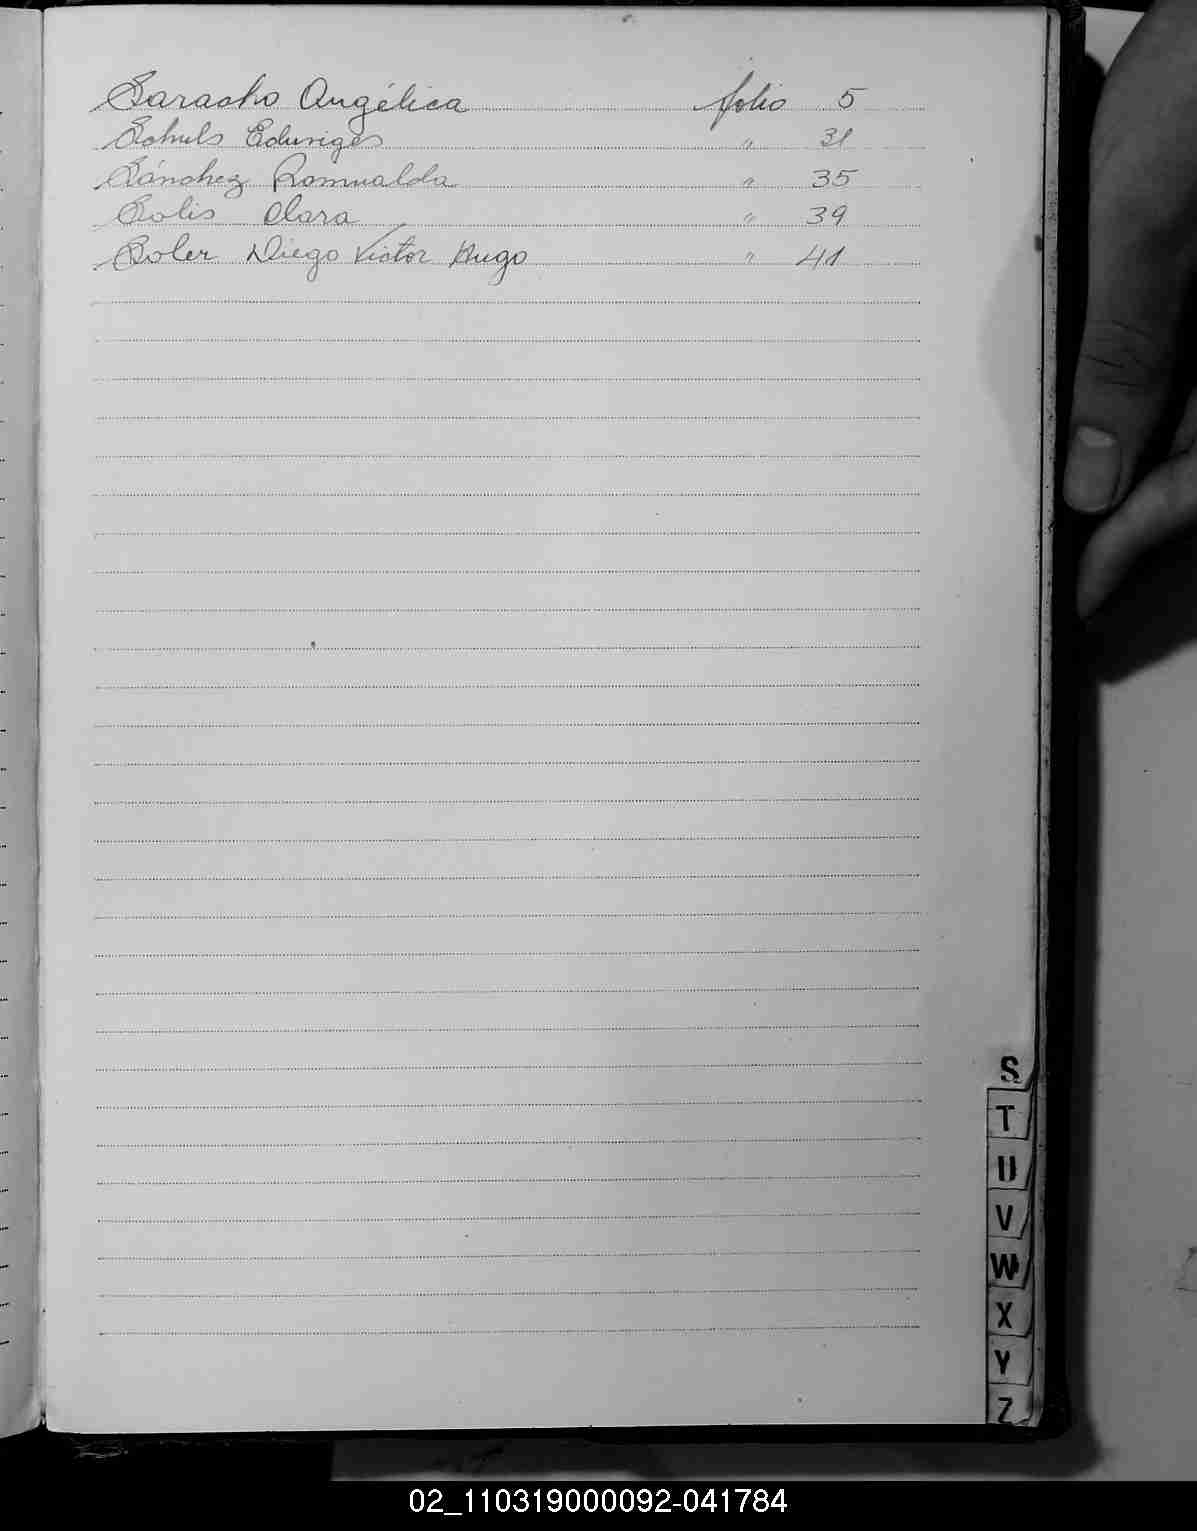 Saracho Angélica folio 5
Schuls Eduviges " 31
Sánchez Romualda " 35
Solis Clara " 39
Soler Diego Victor Hugo " 41
S
T
U
V
W
X
Y
Z
02_110319000092-041784